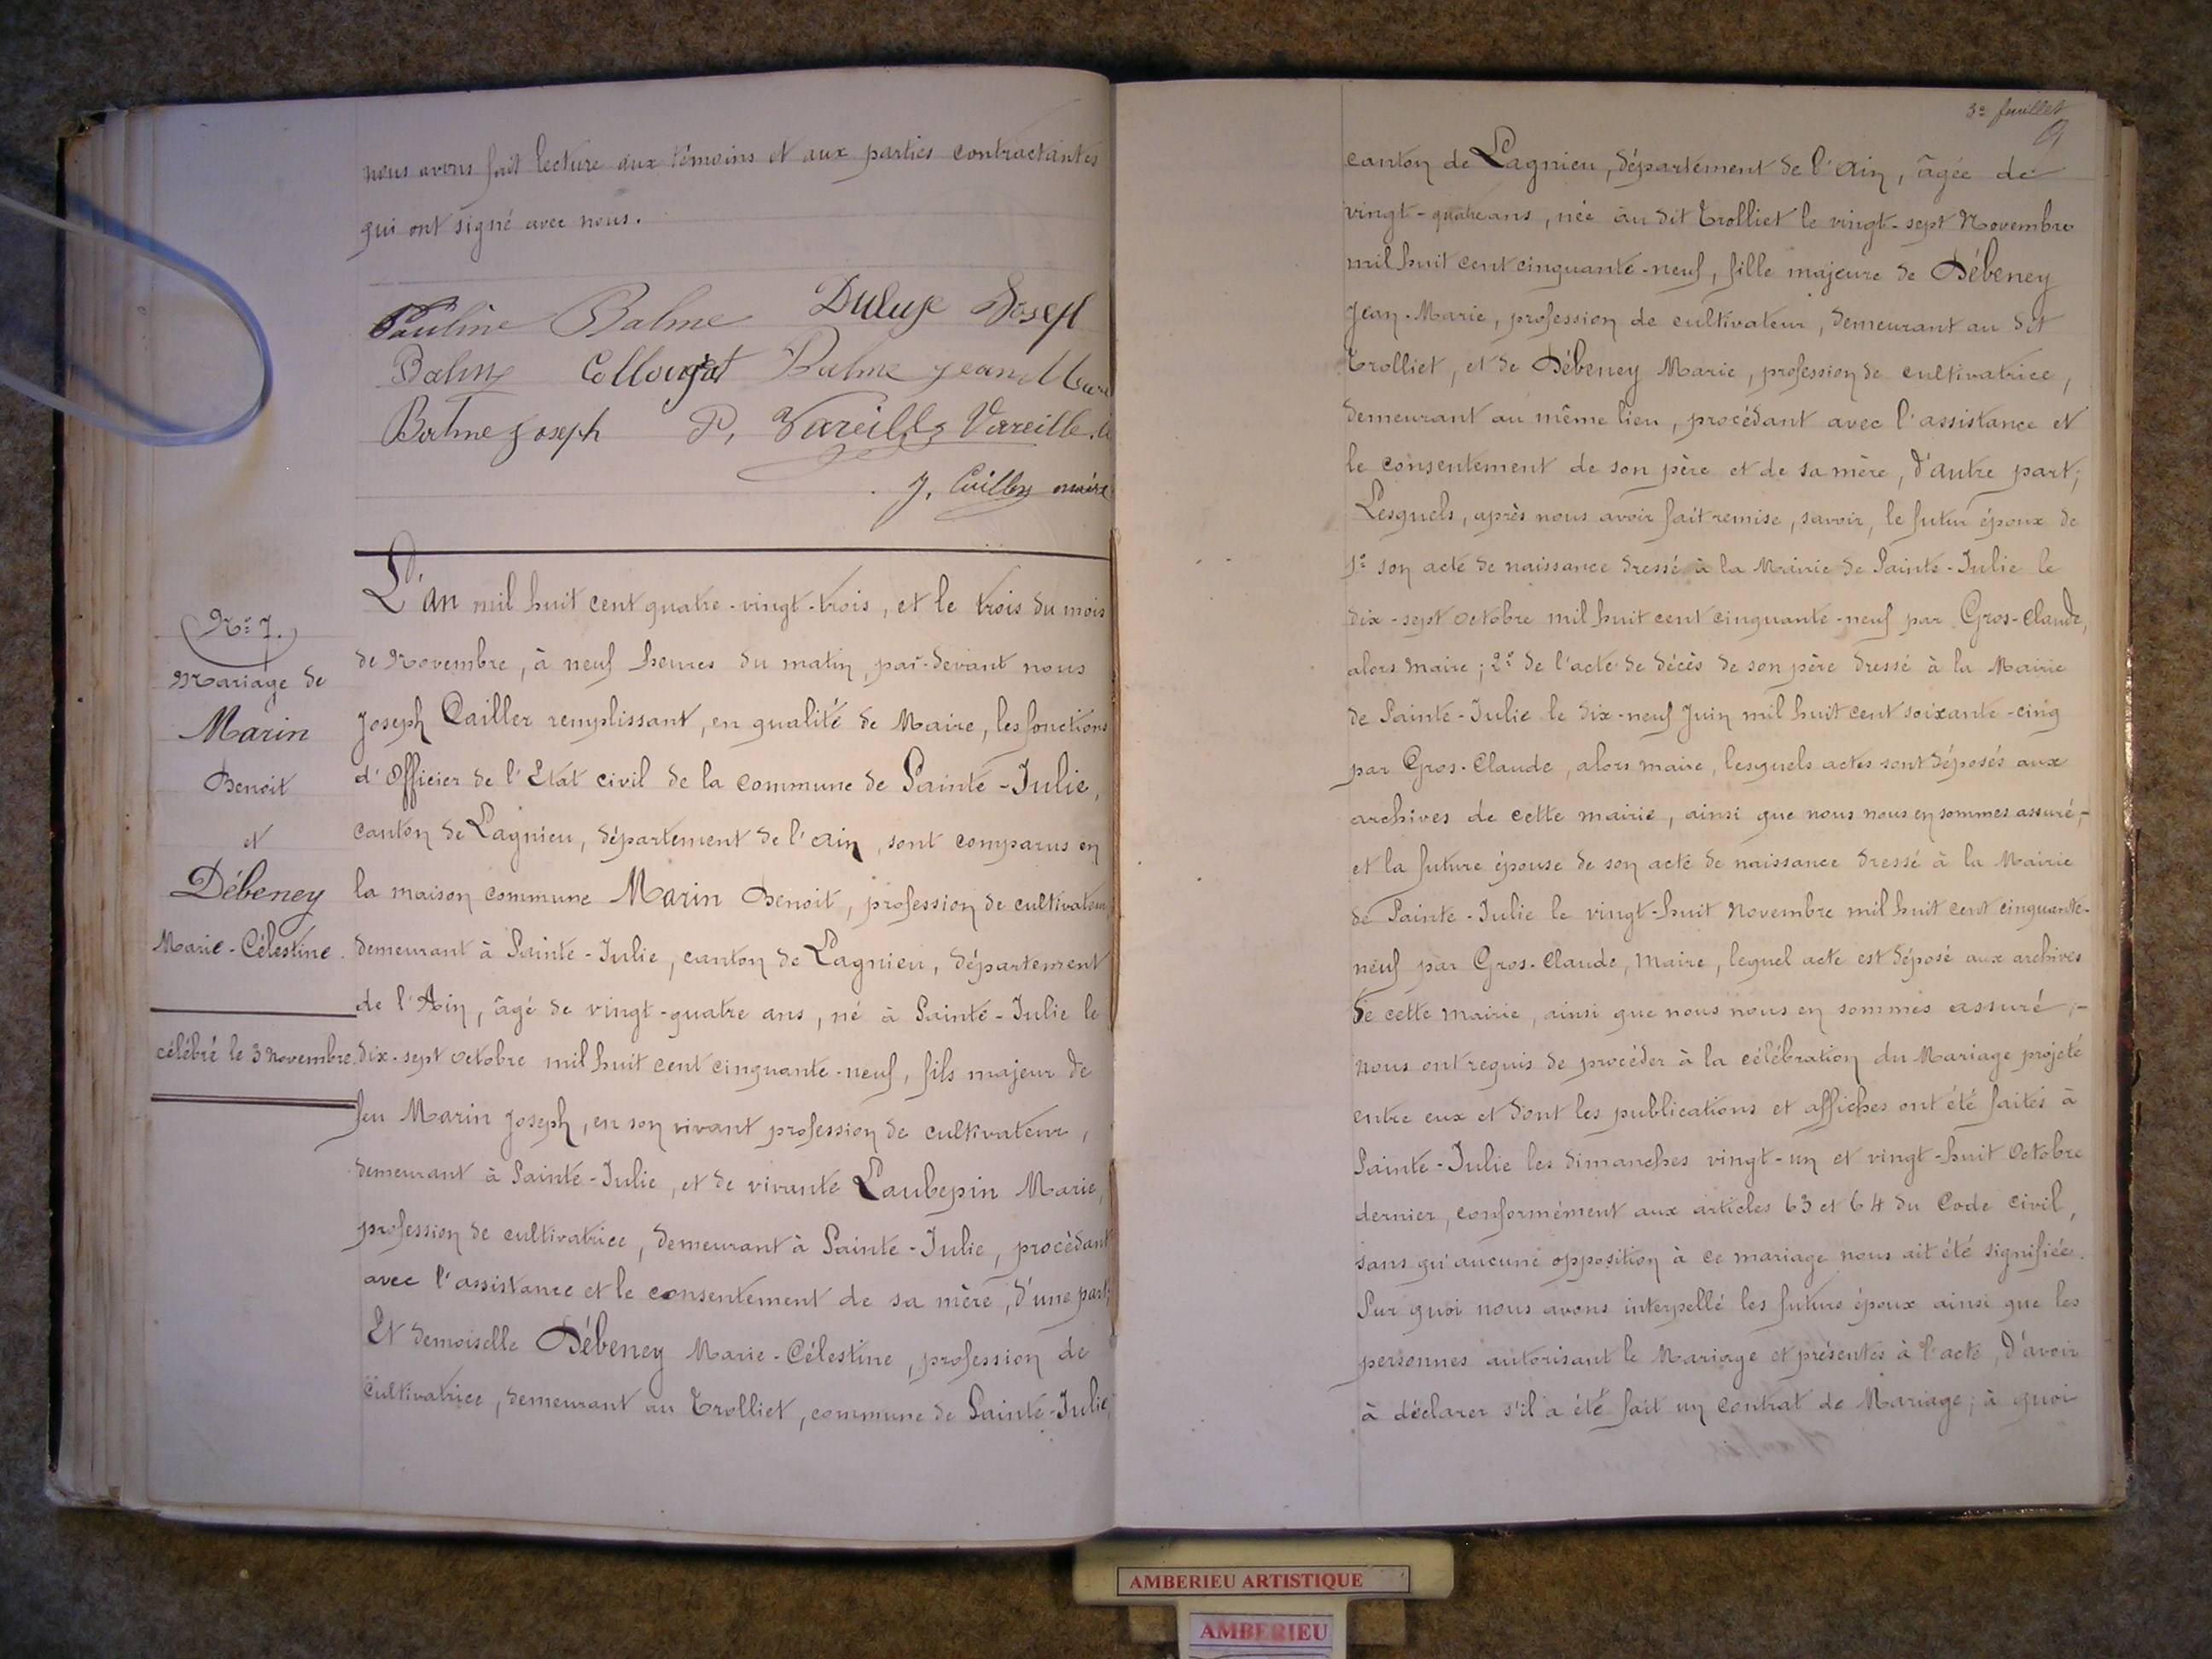 nous avons fait lecture aux témoins et aux parties contractantes
qui ont signé avec nous.
Pauline Balme Duluye Joseph
Balme Collougat Balme jean Marie
Balme Joseph P, Vareille Vareille
J. Cailler maire
L'an mil huit cent quatre-vingt-trois, et le trois du mois
de Novembre, à neuf heures du matin, par-devant nous
Joseph Cailler remplissant, en qualité de Maire, les fonctions
d'Officier de l'Etat civil de la commune de Sainte-Julie,
canton de Lagnieu, département de l'Ain, sont comparus en
la maison commune Marin Benoit, profession de cultivateur,
demeurant à Sainte-Julie, canton de Lagnieu, département
de l'Ain, âgé de vingt-quatre ans, né à Sainte-Julie le
dix-sept octobre mil huit cent cinquante-neuf, fils majeur de
feu Marin Joseph, en son vivant profession de cultivateur,
demeurant à Sainte-Julie, et de vivante Laubepin Marie,
profession de cultivatrice, demeurant à Sainte-Julie, procédant
avec l'assistance et le consentement de sa mère, d'une part;
Et demoiselle Débeney Marie-Célestine, profession de
cultivatrice, demeurant au Trolliet, commune de Sainte-Julie,
No 7.
Mariage de
Marin
Benoit
et
Débeney
Marie-Célestine.
célébré le 3 Novembre.
3e feuillet
9
canton de Lagnieu, département de l'Ain, âgée de
vingt-quatre ans, née au dit Trolliet le vingt-sept Novembre
mil huit cent cinquante-neuf, fille majeure de Débeney
Jean-Marie, profession de cultivateur, demeurant au dit
Trolliet, et de Débeney Marie, profession de cultivatrice,
demeurant au même lieu, procédant avec l'assistance et
le consentement de son père et de sa mère, d'autre part;
Lesquels, après nous avoir fait remise, savoir, le futur époux de
1o son acte de naissance dressé à la Mairie de Sainte-Julie le
dix-sept octobre mil huit cent cinquante-neuf par Gros-Claude,
alors maire; 2o de l'acte de décès de son père dressé à la Mairie
de Sainte-Julie le dix-neuf Juin mil huit cent soixante-cinq
par Gros-Claude, alors maire, lesquels actes sont déposés aux
archives de cette mairie, ainsi que nous nous en sommes assuré,-
et la future épouse de son acte de naissance dressé à la Mairie
de Sainte-Julie le vingt-huit Novembre mil huit cent cinquante-
neuf par Gros-Claude, Maire, lequel acte est déposé aux archives
de cette mairie, ainsi que nous nous en sommes assuré;-
nous ont requis de procéder à la célébration du Mariage projeté
entre eux et dont les publications et affiches ont été faites à
Sainte-Julie les dimanches vingt-un et vingt-huit Octobre
dernier, conformément aux articles 63 et 64 du Code civil,
sans qu'aucune opposition à ce mariage nous ait été signifiée.
Sur quoi nous avons interpellé les futurs époux ainsi que les
personnes autorisant le Mariage et présentes à l'acte, d'avoir
à déclarer s'il a été fait un contrat de Mariage; à quoi
AMBERIEU ARTISTIQUE
AMBERIEU